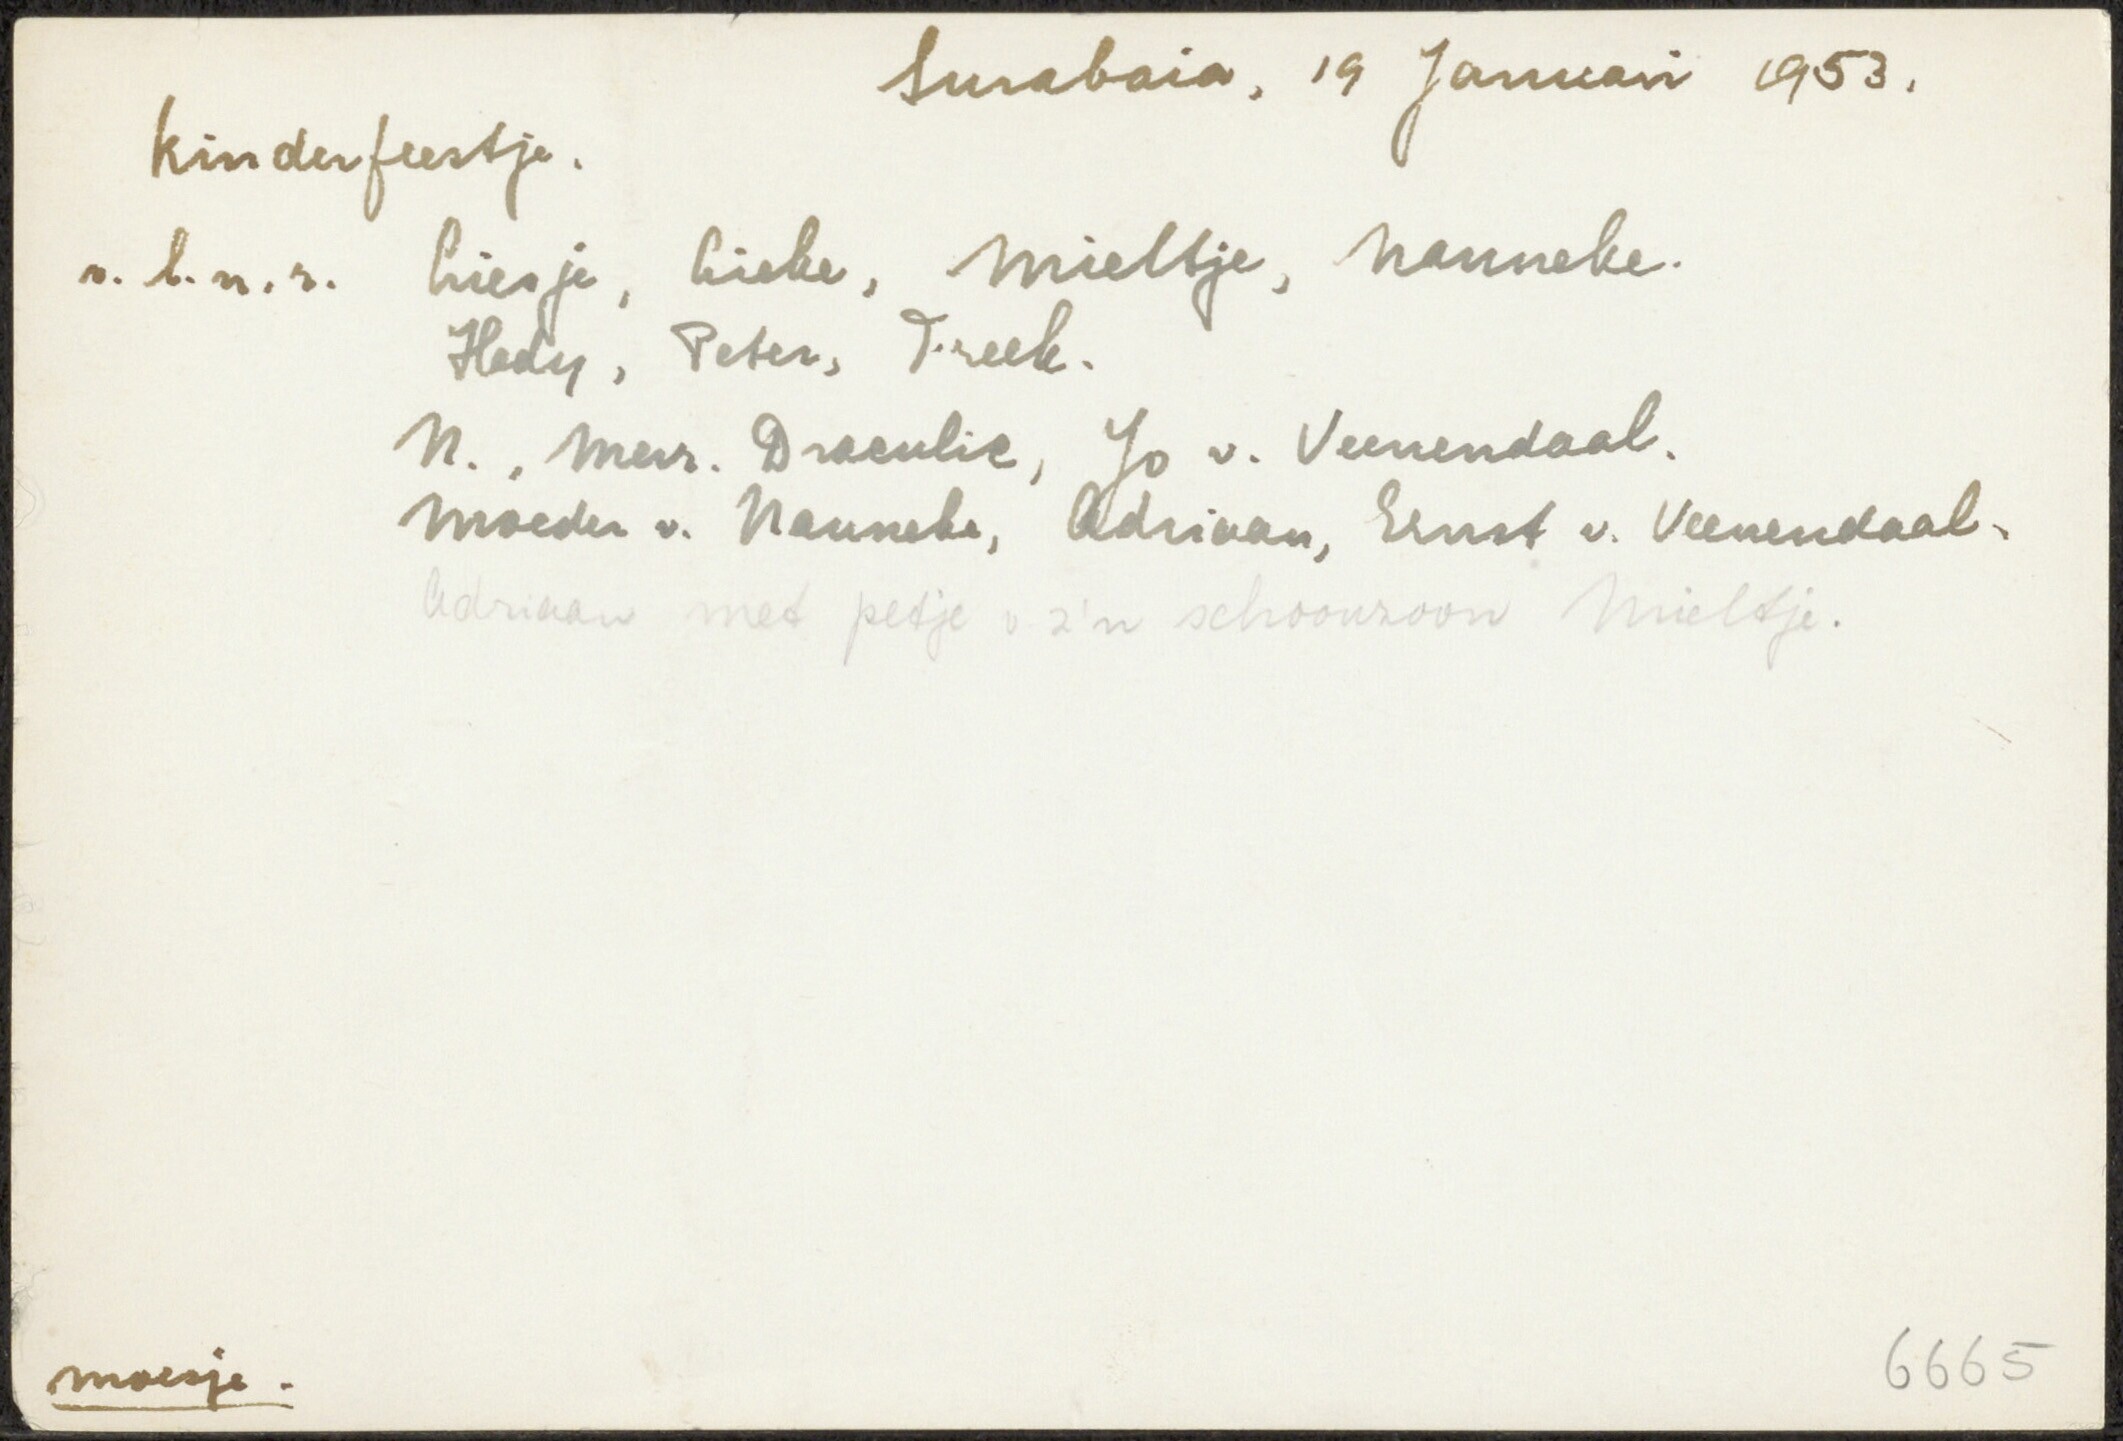 Surabaia, 19 Januari 1953.
kinderfeestje.
v.l.n.r. Liesje, Lieke, Mieltje, Nanneke.
Hedy, Peter, Freek.
N., Mevr. Draculic, Jo v. Veenendaal.
Moeder v. Nanneke, Adriaan, Ernst v. Veenendaal.
Adriaan met petje v z'n schoonzoon Mieltje.
moesje.
6665